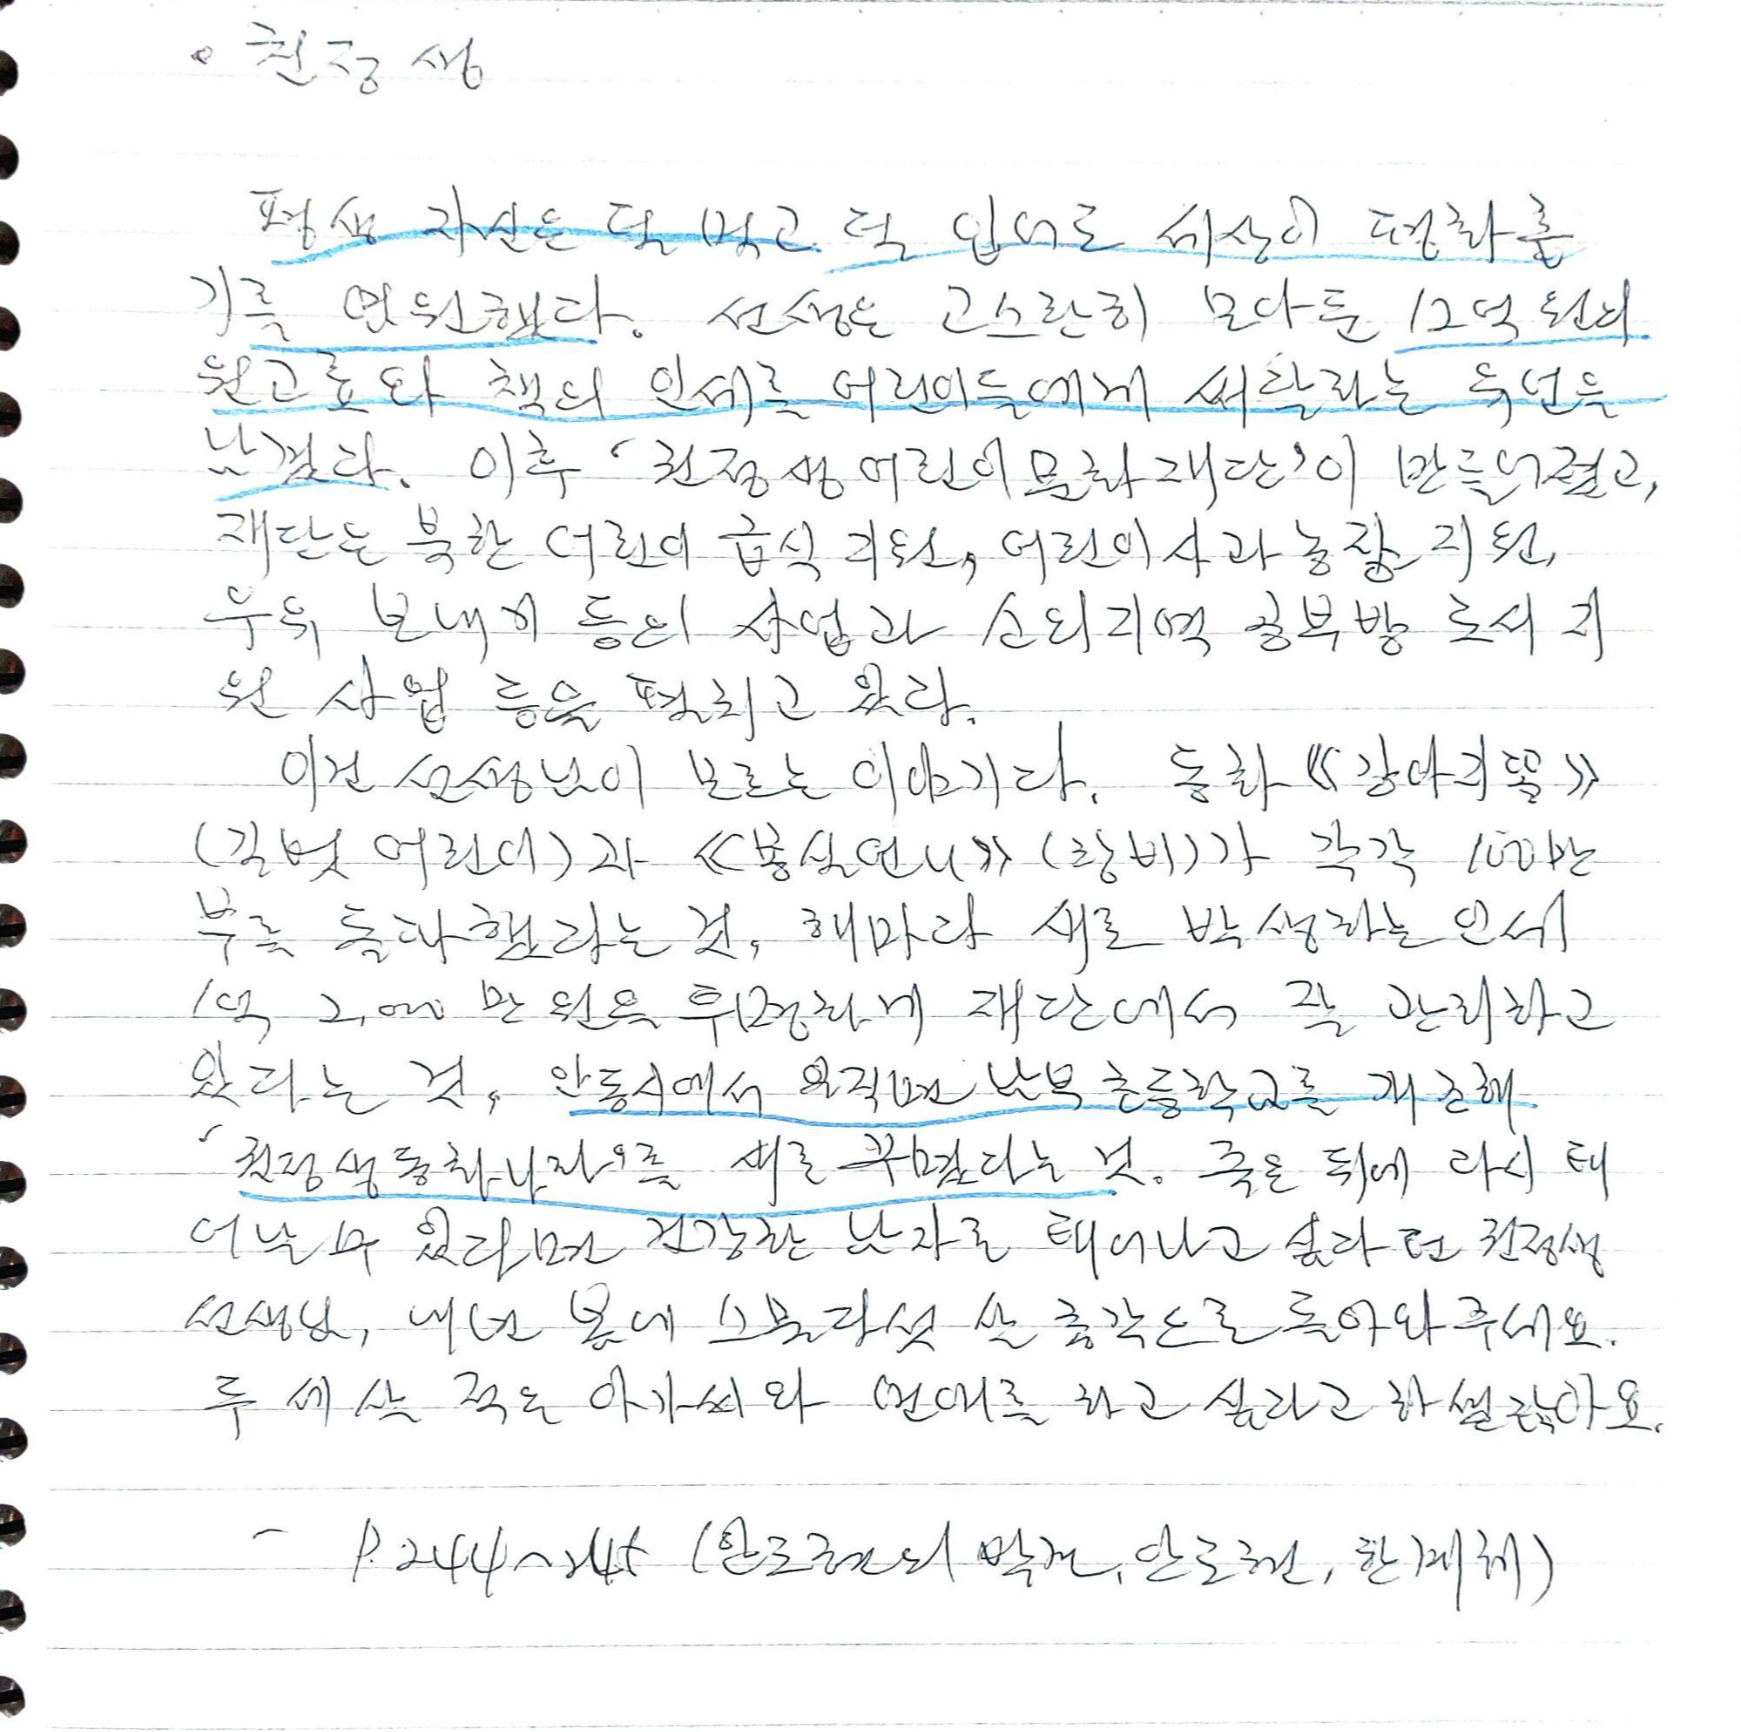 • 권정생
평생 자신은 덜 먹고 덜 입어도 세상이 평화를
기를 염원했다. 선생은 고스란히 모아둔 12억 원의
원고료와 책의 인세를 어린이들에게 써달라는 유언을
남겼다. 이후 '권정생어린이문화재단'이 만들어졌고,
재단은 북한 어린이 급식 지원, 어린이사과농장 지원,
우유 보내기 등의 사업과 소외지역 공부방 도서 지
원 사업 등을 펼치고 있다.
이건 선생님이 모르는 이야기다. 동화 《강아지똥》
(길벗어린이)과 《몽실언니》(창비)가 각각 100만
부를 돌파했다는 것, 해마다 새로 발생하는 인세
1억 2,000만 원을 투명하게 재단에서 잘 관리하고
있다는 것, 안동시에서 일직면 남부초등학교를 개조해
'권정생동화나라'를 새로 꾸몄다는 것. 죽은 뒤에 다시 태
어날 수 있다면 건강한 남자로 태어나고 싶다던 권정생
선생님, 내년 봄에 스물다섯 살 총각으로 돌아와 주세요.
두 세 살 적은 아가씨와 연애를 하고 싶다고 하셨잖아요.
- P.244~245 (안도현의 발견, 안도현, 한겨레)